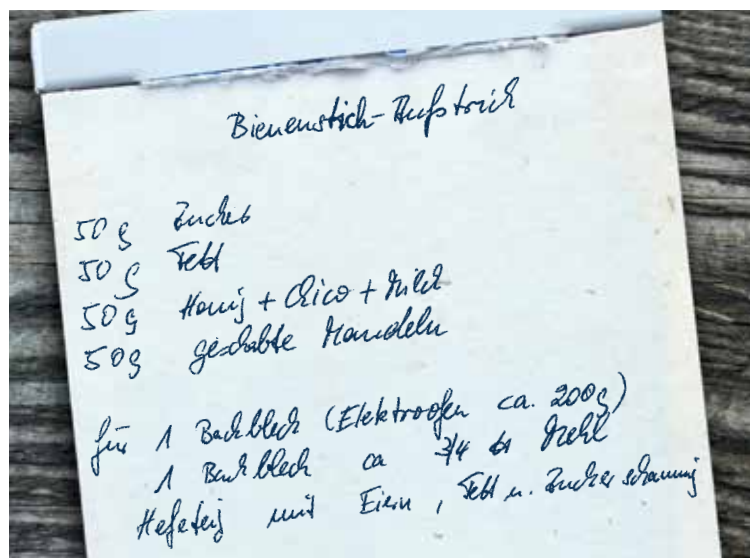 Bienenstich-Aufstrich
50 g Zucker
50 g Fett
50 g Honig + Chico + Milch
50 g geschabte Mandeln
für 1 Backblech (Elektroofen ca. 200g)
1 Backblech ca 3/4 Mehl
Hefeteig mit Eiern, Fett u. Zucker schaumig